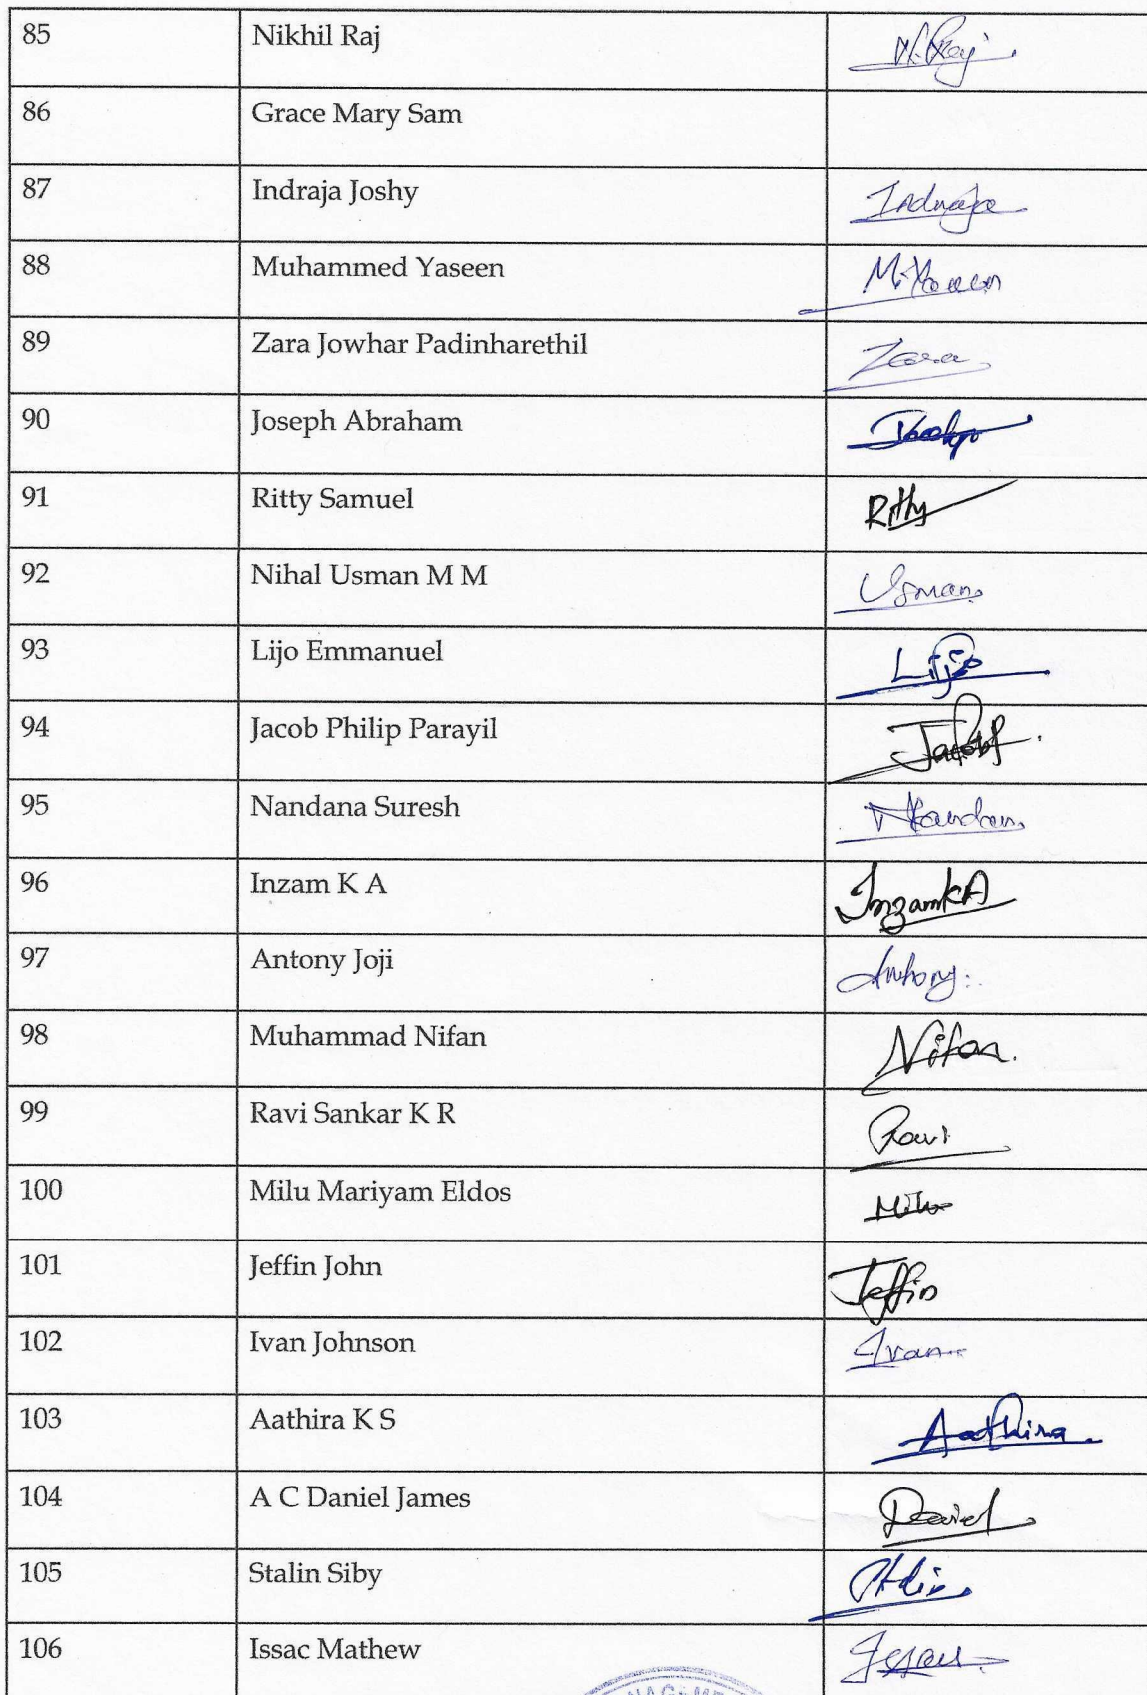 85 Nikhil Raj N. Raj
86 Grace Mary Sam
87 Indraja Joshy Indraja
88 Muhammed Yaseen M.Yaseen
89 Zara Jowhar Padinharethil Zara
90 Joseph Abraham Joseph
91 Ritty Samuel Ritty
92 Nihal Usman M M Usman
93 Lijo Emmanuel Lijo
94 Jacob Philip Parayil Jacob
95 Nandana Suresh
96 Inzam K A Inzam K A
97 Antony Joji Antony
98 Muhammad Nifan Nifan.
99 Ravi Sankar K R Ravi
100 Milu Mariyam Eldos Milu
101 Jeffin John Jeffin
102 Ivan Johnson Ivan
103 Aathira K S Aathira.
104 A C Daniel James Daniel
105 Stalin Siby Stalin
106 Issac Mathew